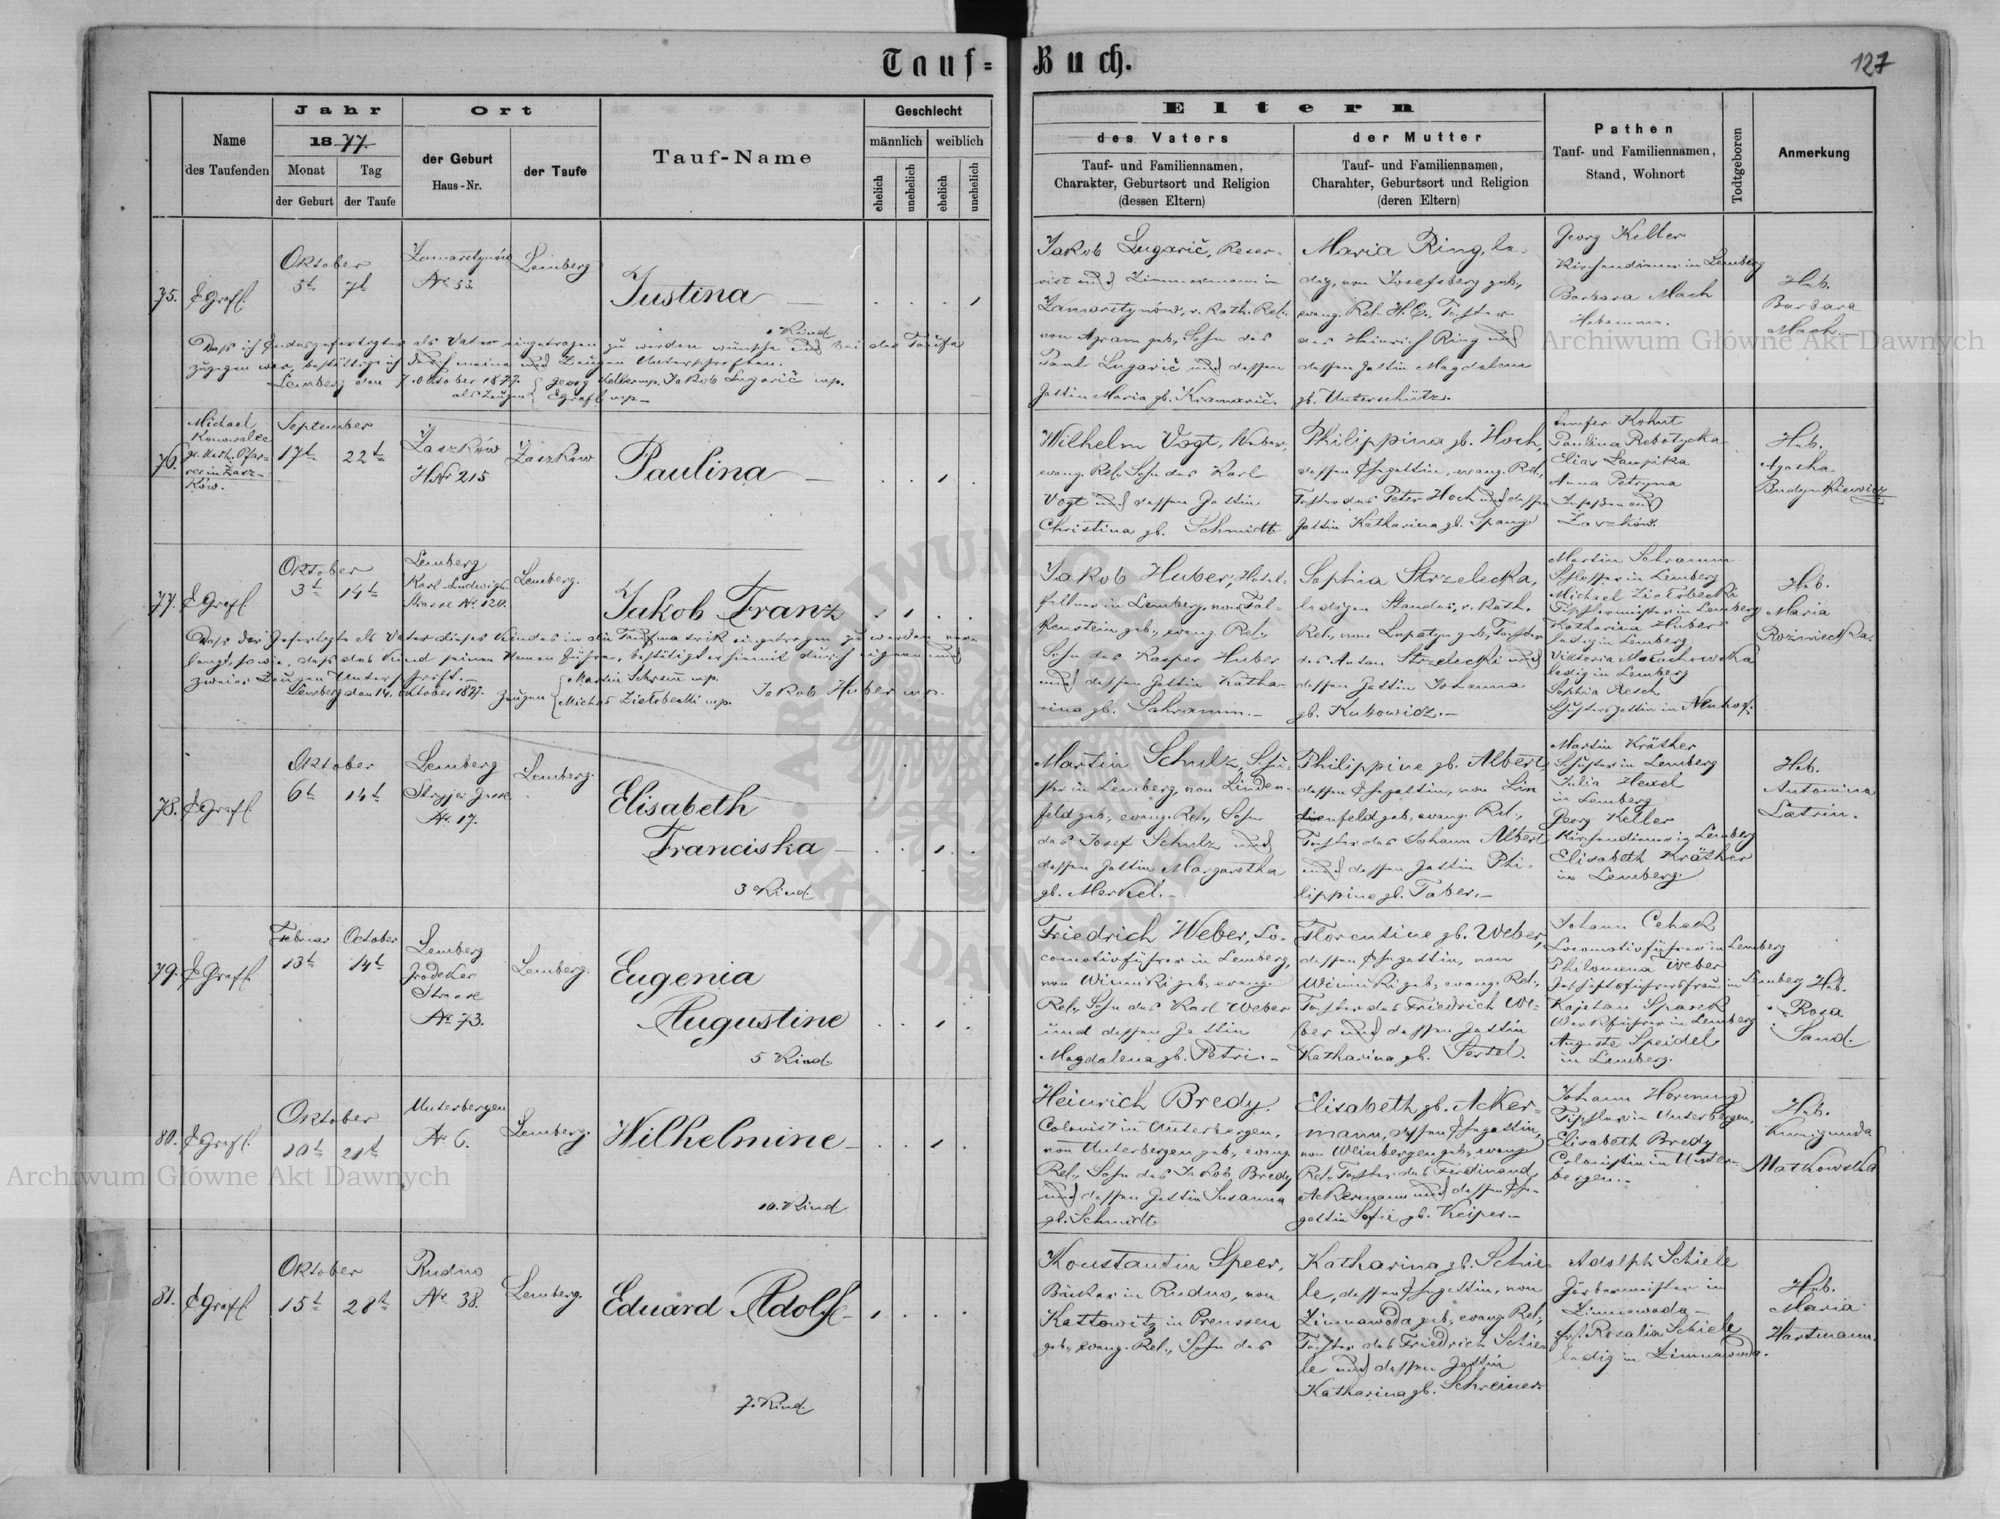 Tauf= Buch.
127
Name des Taufenden
Jahr
1877.
Monat der Geburt
Tag der Taufe
Ort
der Geburt Haus-Nr.
der Taufe
Tauf-Name
Geschlecht
männlich weiblich
ehelich unehelich ehelich unehelich
Eltern
des Vaters
Tauf- und Familiennamen,
Charakter, Geburtsort und Religion
(dessen Eltern)
der Mutter
Tauf- und Familiennamen,
Charahter, Geburtsort und Religion
(deren Eltern)
Pathen
Tauf- und Familiennamen,
Stand, Wohnort
Todtgeboren
Anmerkung
75.
Oktober
5t 7t
Zamarstynów
No 53.
Lemberg
Justina
Kind
Daß ich Endesgefertigter als Vater eingetragen zu werden wünsche und bei der Taufe
zugegen war, bestättige ich durch meine und Zeugen Unterschriften.
Lemberg den 7 Oktober 1877.
als Zeugen
Georg Keller mp. Jakob Lugarič mp.
EGrafl mp.
Jakob Lugarič, Reser-
vist und Zimmermann in
Zamarstynów, r. kath. Rel.
von Agram geb., Sohn des
Lugarič und dessen
Gattin Maria gb. Kramarič.
Maria Ring, le-
dig, von Josefsberg geb.,
evang. Rel. H.C., Tochter
des Heinrich Ring und
dessen Gattin Magdalena
gb. Unterschütz.
Georg Keller
Kirchendiener in Lemberg
Barbara Mach
Hebamme.
Heb.
Barbara
Mach.
76.
Michael
Konowalec
gr. kath. Pfar-
rer in Zasz-
ków.
September
17t 22t
Zaszków
HNr 215
Zaszków
Paulina
Wilhelm Vogt, Weber,
evang. Rel. Sohn des Karl
Vogt und dessen Gattin
Christina gb. Schmidt
Philippina gb. Hoch,
dessen Ehegattin, evang. Rel.,
Tochter des Peter Hoch und dessen
Gattin Katharina gb. Spang
Kohut
Paulina Rebotycka
Elias
Anna Petryna
Zaszków.
Heb.
Agatha
Budynkiewicz
77.
Oktober
3t 14t
Lemberg
Karl-Ludwigs
Strasse No 120.
Lemberg.
Jakob Franz
Daß der Gefertigte als Vater dieses Kindes in die Taufmatrik eingetragen zu werden ver-
langt, sowie, daß das Kind seinen Namen führe, bestätigt er hiemit durch eigene und
zweier Zeugen Unterschrift.
Lemberg den 14. Oktober 1877. Zeugen
Martin Schramm mp.
mp. Jakob Huber mp.
Jakob Huber, Hotel-
kellner in Lemberg, von Fal-
kenstein geb., evang. Rel.,
Sohn des Kasper Huber
und dessen Gattin Katha-
rina gb. Schramm.
Sophia Strzelecka,
ledigen Standes, r. kath.
Rel., von Lopatyn geb., Tochter
des Anton Strzelecki und
dessen Gattin Johanna
gb. Kubowicz.
Martin Schramm
Schlosser in Lemberg
Michael
Tischlermeister in Lemberg
Katharina Huber
ledig in Lemberg
Viktoria Malachowska
ledig in Lemberg
Sophia Resch
in Neuhof.
Heb.
Maria
Rozwiecka.
78.
Oktober
6t 14t
Lemberg
Stryjer Gasse
No. 17.
Lemberg.
Elisabeth
Franciska
3 Kind.
Martin Schulz,
in Lemberg, von Linden-
feld geb., evang. Rel., Sohn
des Josef Schulz und
dessen Gattin Margaretha
gb. Merkel.
Philippine gb. Albert,
dessen Ehegattin, von Lin
denfeld geb., evang. Rel.,
Tochter des Johann Albert
und dessen Gattin Phi-
lippine gb. Faber.
Martin Kräther
in Lemberg
Julia Hexel
in Lemberg
Georg Keller
Kirchendiener in Lemberg
Elisabeth Kräther
in Lemberg.
Heb.
Antonina
Latrin.
79.
Februar October
13t 14t
Lemberg
Grodeker
Strasse
No 73.
Lemberg.
Eugenia
Augustine
5 Kind.
Friedrich Weber, Lo-
comotivführer in Lemberg,
von Winniki geb., evang.
Rel., Sohn des Karl Weber
und dessen Gattin
Magdalena gb. Petri.
Florentine gb. Weber,
dessen Ehegattin, von
Winniki geb., evang. Rel.,
Tochter des Friedrich We-
ber und dessen Gattin
Katharina gb. Sertel.
Johann Cehak
Locomotivführer in Lemberg
Philomena Weber
in Lemberg
Kajetan Sparek
Werkführer in Lemberg
Auguste Speidel
in Lemberg.
Heb.
Rosa
Sand.
80.
Oktober
10t 21t
Unterbergen
No 6.
Lemberg.
Wilhelmine
10. Kind
Heinrich Bredy,
Colonist in Unterbergen,
von Unterbergen geb., evang.
Rel., Sohn des Jakob Bredy
und dessen Gattin Susanna
gb. Schmidt.
Elisabeth gb. Acker-
mann, dessen Ehegattin,
von Weinbergen geb., evang.
Rel., Tochter des Ferdinand
Ackermann und dessen Ehe-
gattin Sofie gb. Keiper.
Johann Hornung
Tischler in Unterbergen,
Elisabeth Bredy
Colonistin in Unter-
bergen.
Heb.
Kunigunda
Matkowska
81.
Oktober
15t 28t
Rudno
No. 38.
Lemberg.
Eduard Adolf
7. Kind.
Konstantin Speer,
Bäcker in Rudno, von
Kattowitz in Preussen
geb., evang. Rel., Sohn des
Katharina gb. Schie-
le, dessen Ehegattin, von
Zimnawoda geb., evang. Rel.,
Tochter des Friedrich Schie-
le und dessen Gattin
Katharina gb. Schreiner.
Adolph Schiele
Färbermeister in
Zimnawoda
Rosalia Schiele
ledig in Zimnawoda.
Heb.
Maria
Hartmann.
Archiwum Główne Akt Dawnych
Archiwum Główne Akt Dawnych